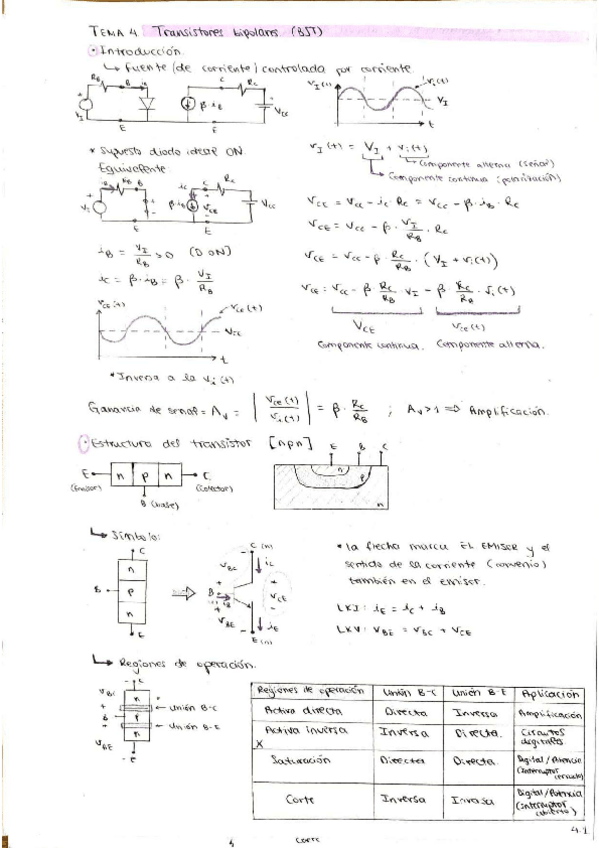 TEMA 4. Transistores bipolares (BJT)
• Introducción.
↳ Fuente (de corriente) controlada por corriente.
R_B B i_B C R_C
v_I β·i_B V_CC
E E
v_I(t) v_i(t)
V_I
t
* Supuesto diodo ideal ON.
Equivalente:
v_I(t) = V_I + v_i(t)
→ Componente alterna (señal)
→ Componente continua (polarización)
R_B B i_C C R_C
v_I β·i_B v_CE V_CC
E E
v_CE = V_CC - i_C R_C = V_CC - β·i_B·R_C
v_CE = V_CC - β·V_I/R_B·R_C
i_B = V_I/R_B > 0 (D ON)
i_C = β·i_B = β·V_I/R_B
v_CE = V_CC - β·R_C/R_B·(V_I + v_i(t))
v_CE = V_CC - β R_C/R_B·V_I - β·R_C/R_B·v_i(t)
V_CE v_ce(t)
Componente continua. Componente alterna.
v_CE(t) v_ce(t)
V_CE
t
* Inversa a la v_i(t)
Ganancia de señal = A_v = |v_ce(t)/v_i(t)| = β·R_C/R_B ; A_v>1 ⇒ Amplificación.
• Estructura del transistor [npn]
E n p n C
(Emisor) (Colector)
B (base)
E B C
n
p
n
↳ Símbolo:
C
n
B p
n
E
C (n)
v_BC i_C
B i_B v_CE
v_BE i_E
E (n)
* la flecha marca EL EMISER y el
sentido de la corriente (convenio)
también en el emiser.
LKI: i_E = i_C + i_B
LKV: v_BE = v_BC + v_CE
↳ Regiones de operación.
C
v_BC n
← Unión B-C
B p
← Unión B-E
v_BE n
E
Regiones de operación Unión B-C Unión B-E Aplicación
Activa directa Directa Inversa Amplificación
Activa inversa Inversa Directa. Circuitos digitales
X
Saturación Directa Directa. Digital/Potencia (interruptor cerrado)
Corte Inversa Inversa Digital/Potencia (interruptor abierto)
4.1
Corte